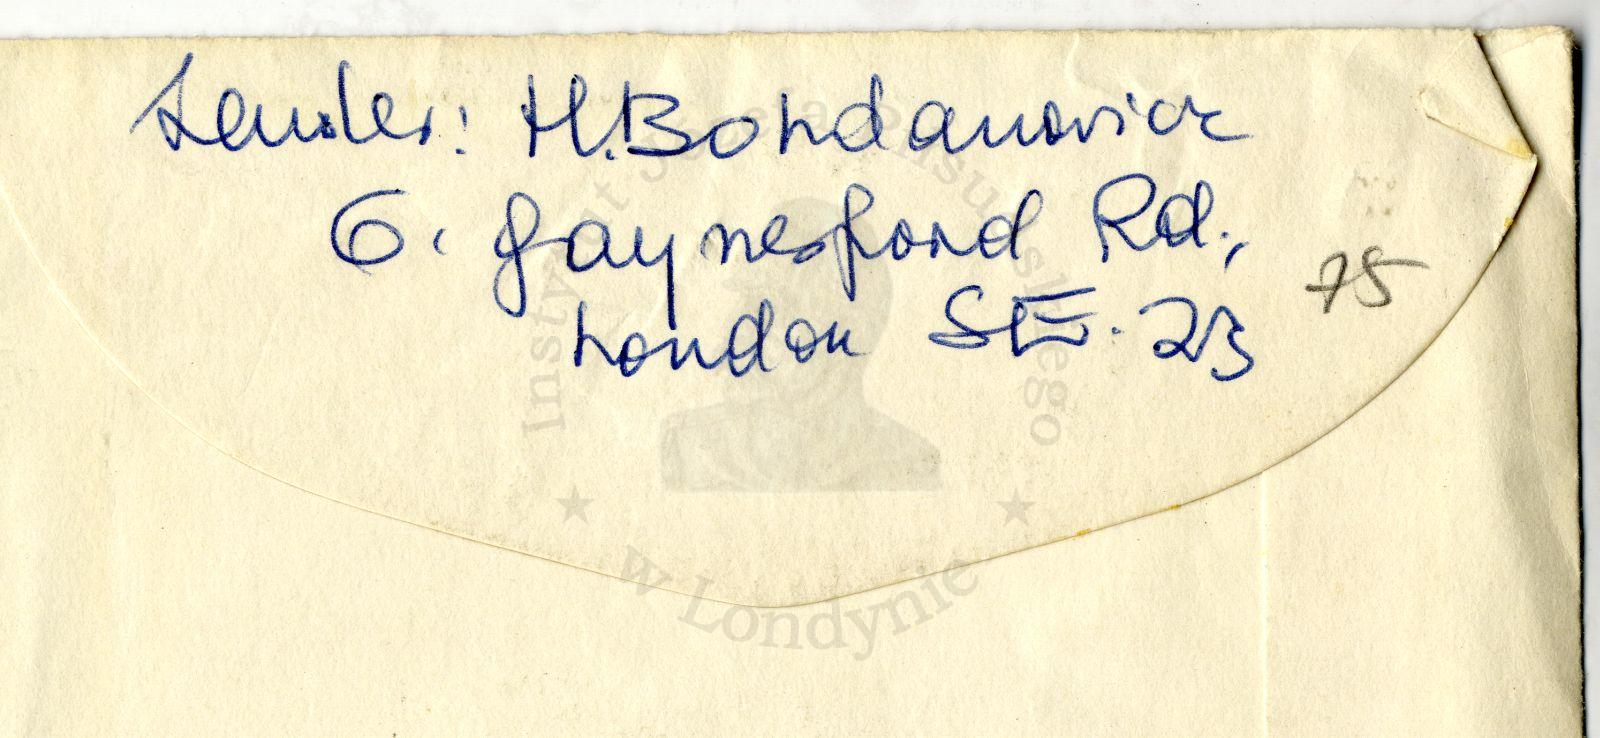 Sender: H. Bohdanowicz
6. Gaynesford Rd.,
London SE. 23
75
Instytut Józefa Piłsudskiego
w Londynie